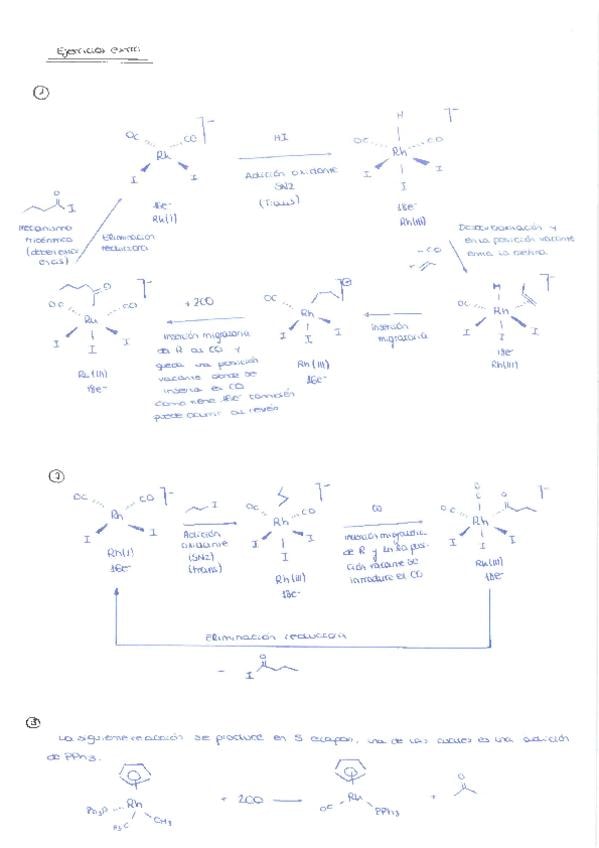 Ejercicios extra
1
OC CO ]-
Rh
I I
16e-
Rh(I)
HI
Adición oxidante
SN2
(Trans)
H ]-
OC CO
Rh
I I
I
18e-
Rh(III)
O
I
Mecanismo
Eliminación
reductora
Descoordinación y
en la posición vacante
entra la olefina
- CO
+
H ]-
OC
Rh
I I
I
18e-
Rh(III)
inserción
migratoria
OC
Rh
I I
I
Rh(III)
16e-
+ 2CO
inserción migratoria
de R al CO y
queda una posición
vacante donde se
inserta el CO
Como tiene 16e- también
puede ocurrir al revés
O ]-
OC CO
I I
I
Rh(III)
18e-
2
OC CO ]-
Rh
I I
Rh(I)
16e-
I
Adición
oxidante
(SN2)
(trans)
]-
OC CO
Rh
I I
I
Rh(III)
18e-
CO
inserción migratoria
de R y en la posi-
ción vacante se
introduce el CO
O ]-
OC
Rh
I I
I
Rh(III)
18e-
Eliminación reductora
- I O
3
La siguiente reacción se produce en 5 etapas, una de las cuales es una adición
de PPh3.
Ph3P Rh
H3C CH3
+ 2CO
OC Rh PPh3
+ O